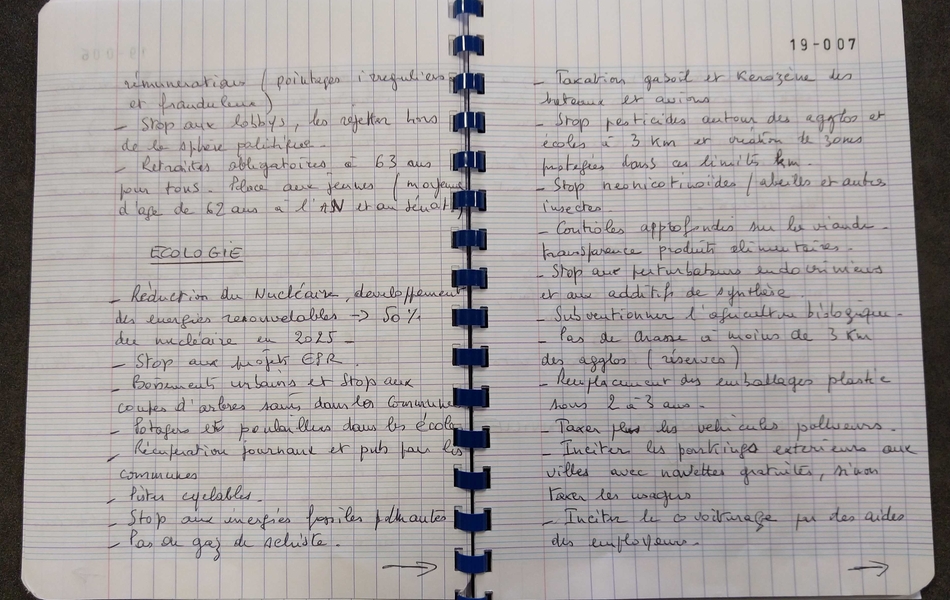 rémunération (pointages irréguliers
et frauduleux)
- Stop aux lobbys, les rejetter hors
de la sphère politique.
- Retraites obligatoires à 63 ans
pour tous. Place aux jeunes (moyenne
d'age de 62 ans à l'AN et au Sénat)
ECOLOGIE
- Réduction du Nucléaire, developpement
des energies renouvelables -> 50%
du nucléaire en 2025 -
- Stop aux projets EPR.
- Boisements urbains et Stop aux
coupes d'arbres sains dans les communes
- Potagers et poulaillers dans les écoles
- Récupération journaux et pub par les
communes
- Pistes cyclables.
- Stop aux énergies fossiles polluantes
- Pas de gaz de schiste.
->
19-007
- Taxation gasoil et Kerozène des
bateaux et avions
- Stop pesticides autour des agglos et
écoles à 3 Km et création de zones
protégées dans ces limites km.
- Stop neonicotinoïdes / abeilles et autres
insectes.
- Contrôles approfondis sur la viande.
transparence produits alimentaires.
- Stop aux perturbateurs endocriniens
et aux additifs de synthèse.
- Subventionner l'agriculture biologique.
- Pas de chasse à moins de 3 Km
des agglos. (réserves)
- Remplacement des emballages plastic
sous 2 à 3 ans.
- Taxer plus les vehicules pollueurs.
- Inciter les parkings exterieurs aux
villes avec navettes gratuites, sinon
taxer les usagers
- Inciter le covoiturage par des aides
des employeurs.
->